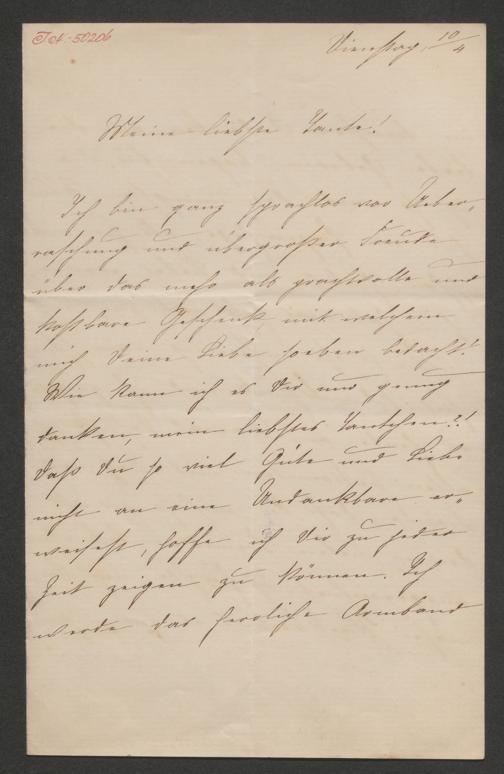 I.N. 50206
Dienstag, 10/4
Meine liebste Tante!
Ich bin ganz sprachlos vor Ueber-
raschung und übergroßer Freude
über das mehr als prachtvolle und
kostbare Geschenk, mit welchem
mich Deine Liebe soeben bedacht!
Wie kann ich es Dir nur genug
danken, mein liebstes Tantchen?!
Daß Du so viel Güte und Liebe
nicht an eine Undankbare er-
weisest, hoffe ich Dir zu jeder
Zeit zeigen zu können. Ich
werde das herrliche Armband